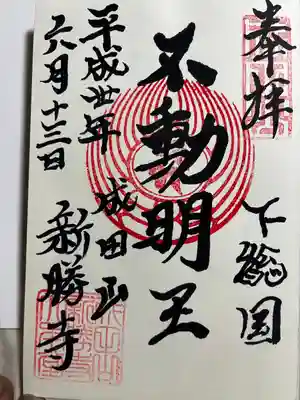 奉拝
下總国
不動明王
成田山
新勝寺
平成廿年
六月十三日